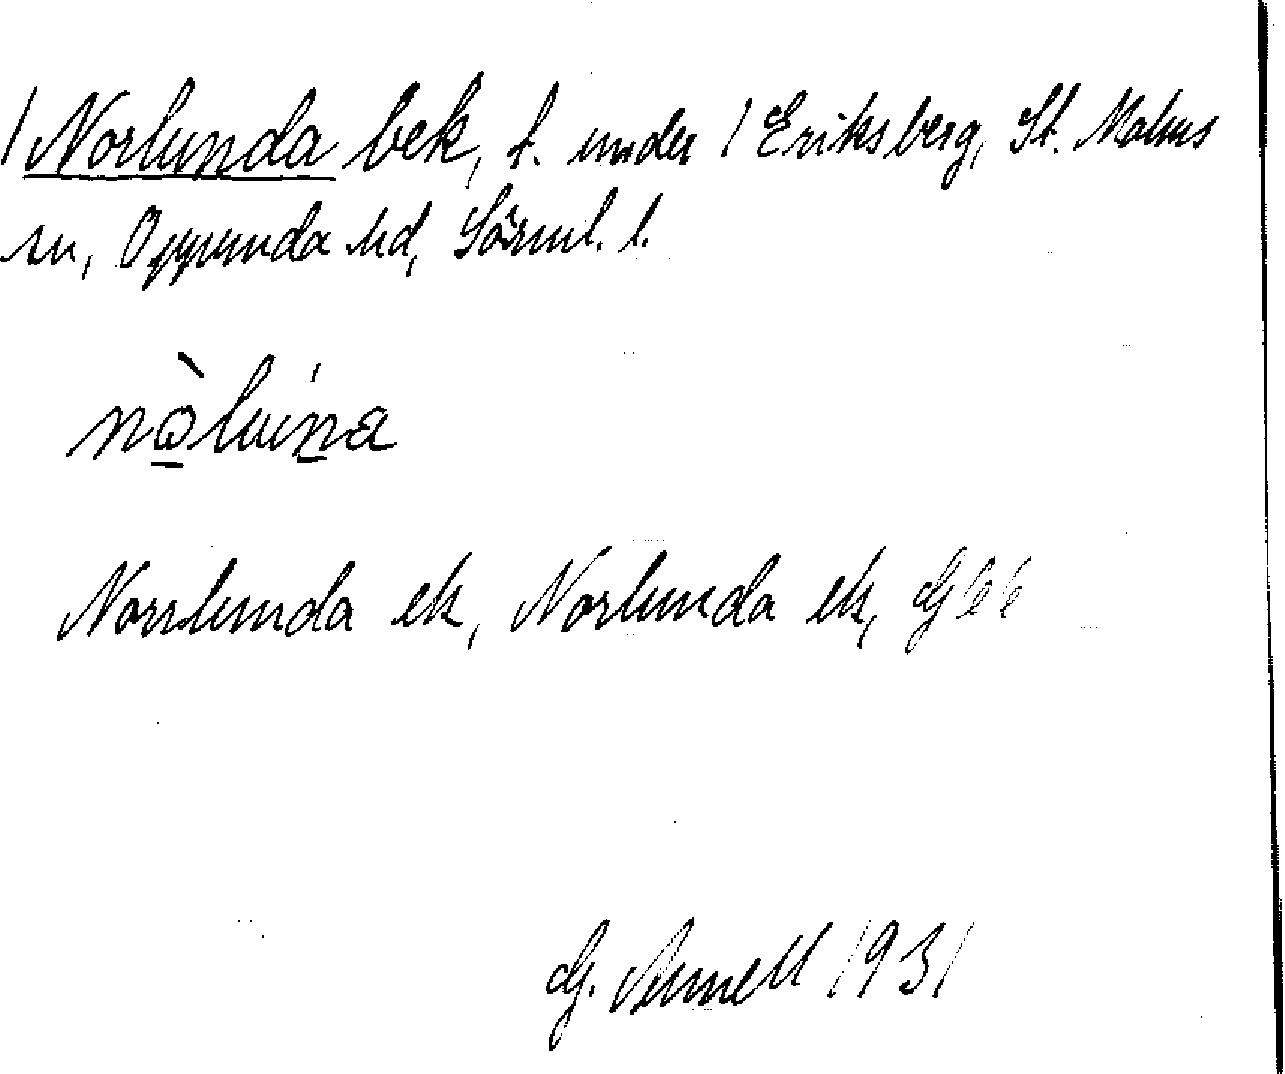 / Norlunda bek, t. under / Eriksberg, St. Malms
sn, Oppunda hd, Sörml. l.
nò̱luín̠a
Norrlunda ek, Norlunda ek, G66
G. Arnell 1931